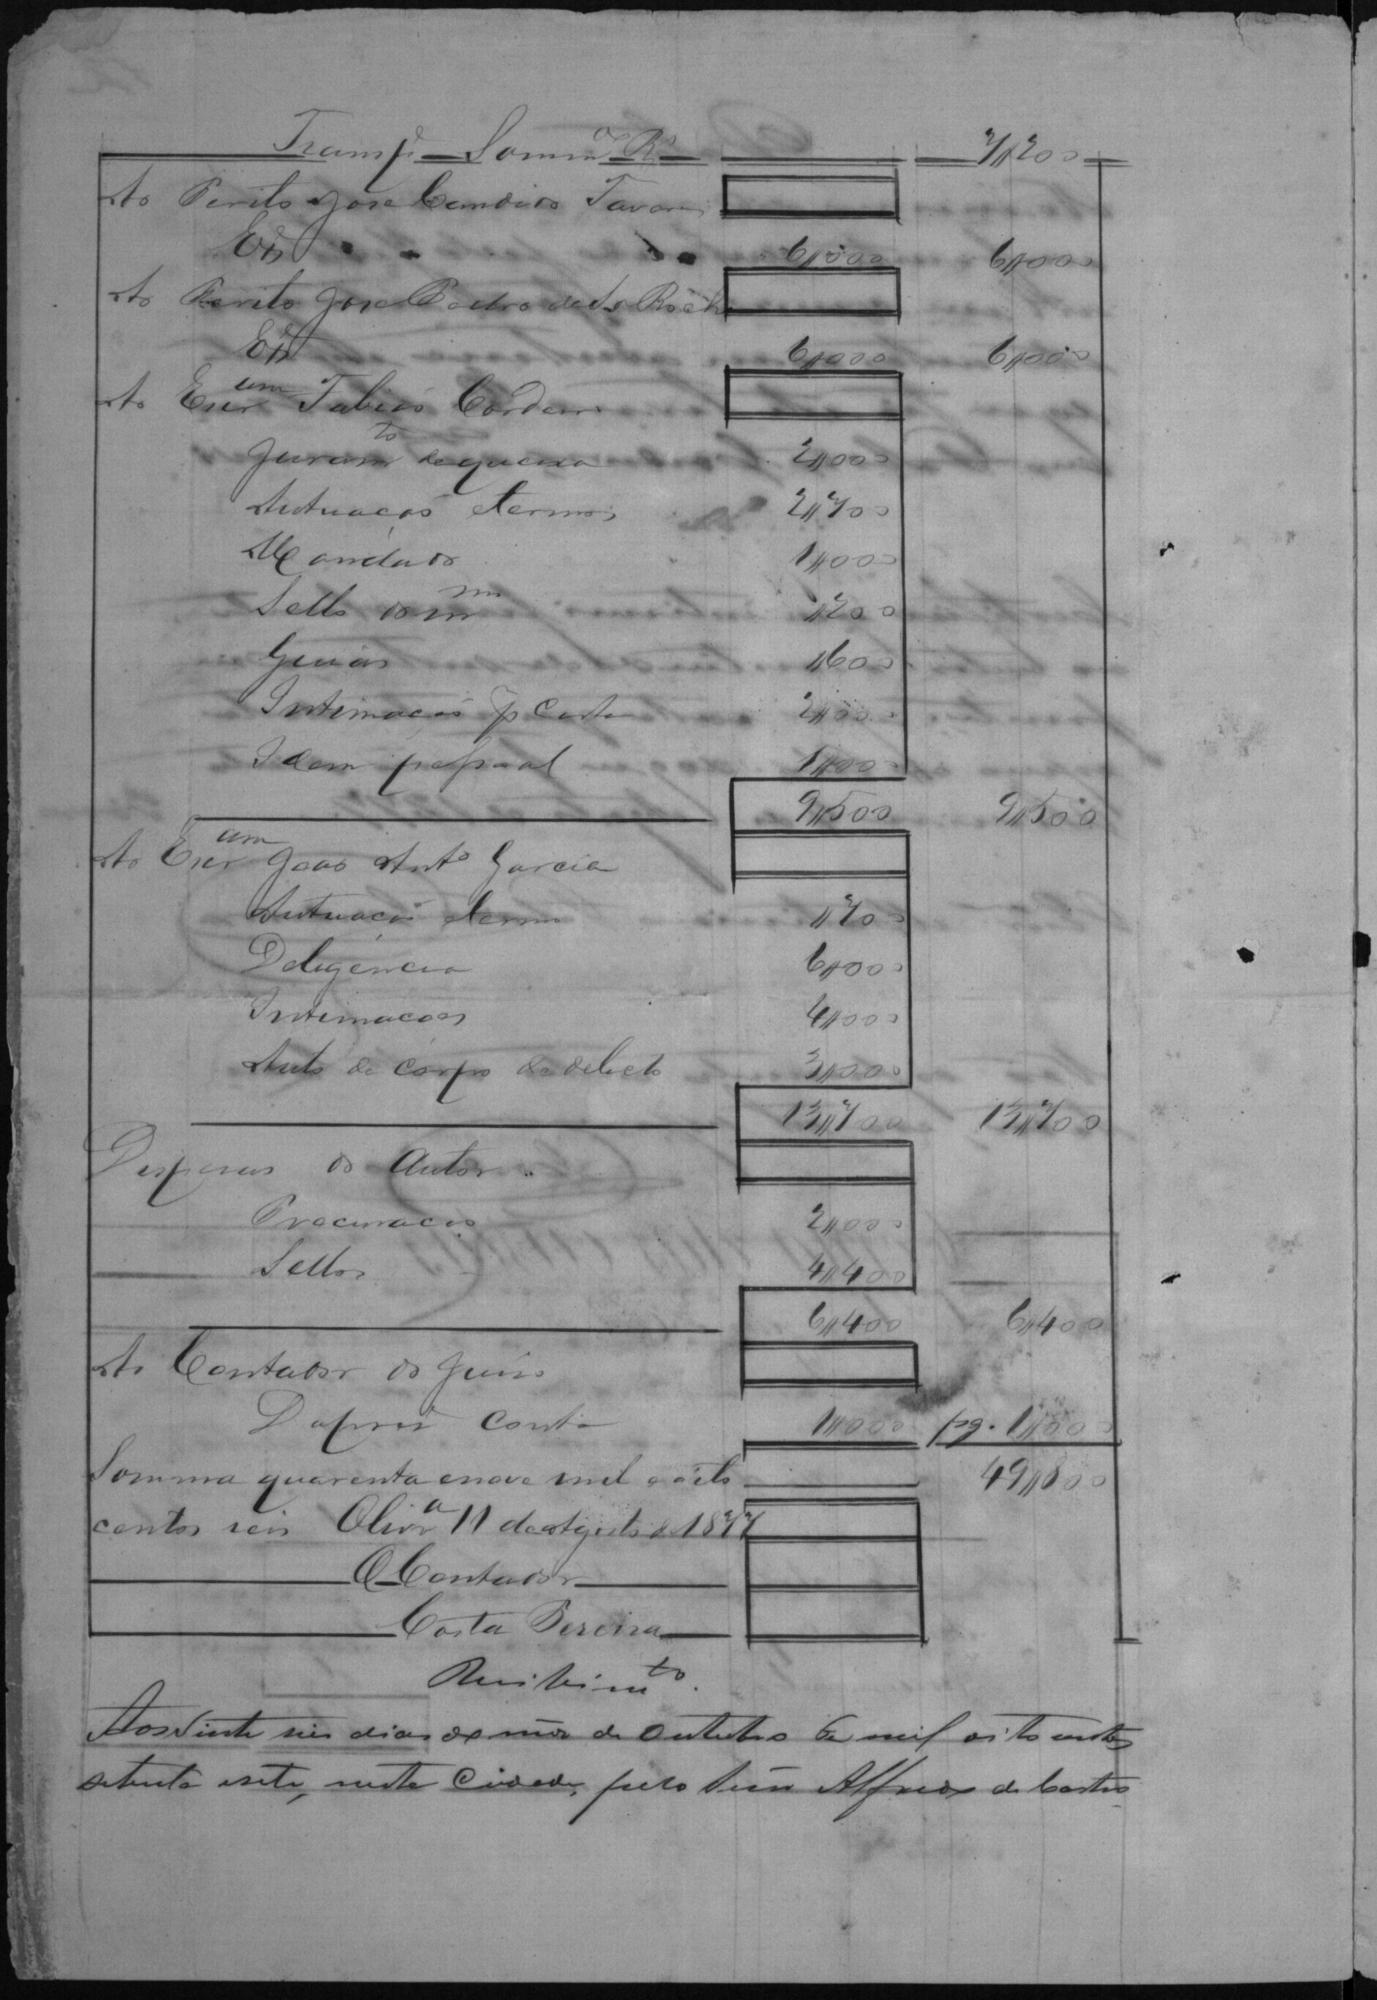 Transp.e Somma Rs 7,,200
Ao Perito Jose Candido Tavares
Est. 6,,000 6,,000
Ao Perito Jose Pedro de Sa Rocha
Est. 6,,000 6,,000
Ao Escr.am Tobias Cordeiro
Juram.to de queixa 2,,000
Autuação e termos 2,,700
Mandado 1,,000
Sello do mmo ,,200
Guias ,,600
Intimação p Carta 2,,000
Idem pessoal 1,,000
9,,500 9,,500
Ao Escr.am João Anto Garcia
Autuação e termo ,,700
Deligencia 6,,000
Intimações 4,,000
Auto de corpo de delicto 3,,000
13,,700 13,,700
Despesas do Autor
Procuração 2,,000
Sellos 4,,400
6,,400 6,,400
Ao Contador do Juiso
Da presente conta 1,,000 pg. 1,,000
Somma quarenta e nove mil e oito 49,,800
centos reis Olivr.a 11 de Agosto de 1877
O Contador
Costa Pereira
Recibim.to
Aos vinte seis dias do mes de Outubro de mil oitocentos
setenta e sete, nesta Cidade, pelo Alfredo de Castro